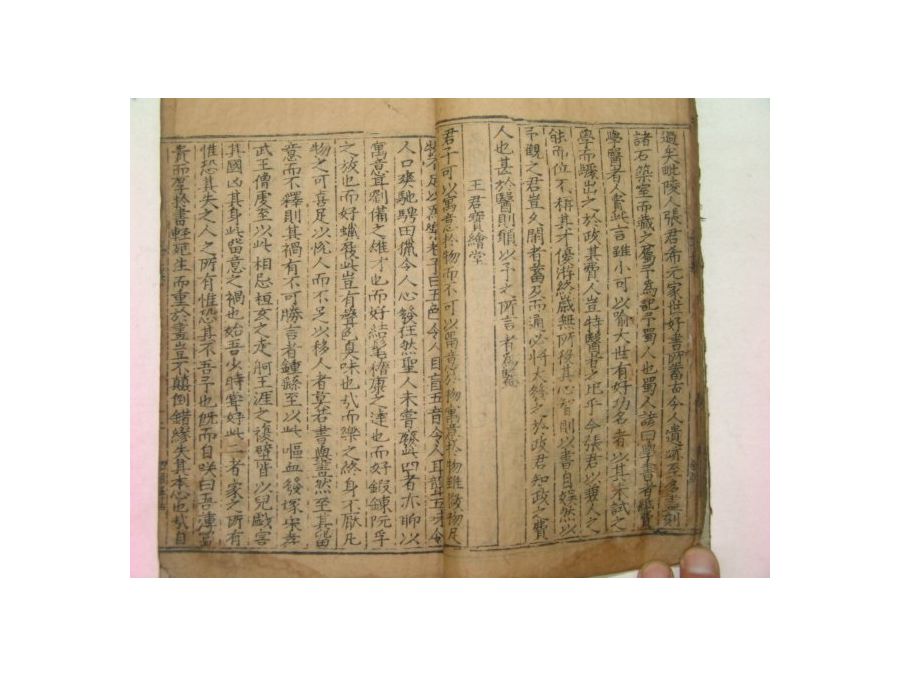 過矣毗陵人張君希元家世好書所蓄古今人遺跡至多盡刻
諸石築室而藏之屬予為記予蜀人也蜀人諺曰學書者紙費
學醫者人費此言雖小可以喻大世有好功名者以其未試之
學而驟出之於政其費人豈特醫者之比乎今張君以兼人之
能而位不稱其才優游終歲無所役其心智則以書自娛然以
予觀之君豈久閑者蓄極而通必將大發之於政君知政之費
人也甚於醫則願以予之所言者為鑒
王君寶繪堂
君子可以寓意於物而不可以留意於物寓意於物雖微物足
物不足以為樂老子曰五色令人目盲五音令人耳聾五味令
人口爽馳騁田獵令人心發狂然聖人未嘗廢此四者亦聊以
寓意耳劉備之雄才也而好結髦嵇康之達也而好鍛鍊阮孚
之放也而好蠟屐此豈有聲色臭味也哉而樂之終身不厭凡
物之可喜足以悅人而不足以移人者莫若書與畫然至其留
意而不釋則其禍有不可勝言者鍾繇至以此嘔血發塚宋孝
武王僧虔至以此相忌桓玄之走舸王涯之複壁皆以兒戲害
其國凶其身此留意之禍也始吾少時嘗好此二者家之所有
惟恐其失之人之所有惟恐其不吾予也既而自咲曰吾薄富
貴而厚於書輕死生而重於畫豈不顛倒錯繆失其本心也哉自